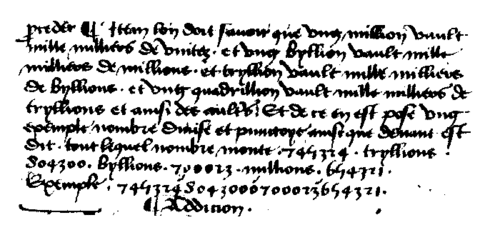 preder ¶ Item lon doit savoir que ung million vault
mille milliers de unitez . et ung byllion vault mille
milliers de millions . et tryllion vault mille milliers
de byllions . et ung quadrillion vault mille milliers de
tryllions et ainsi des aultres Et de ce en est pose ung
exemple nombre divise et punctoye ainsi que devant est
dit . tout lequel nombre monte . 745324 . tryllions .
804300 . byllions . 700023 . millions . 654321 .
Exemple . 745324804300700023654321 .
¶ Addicion .